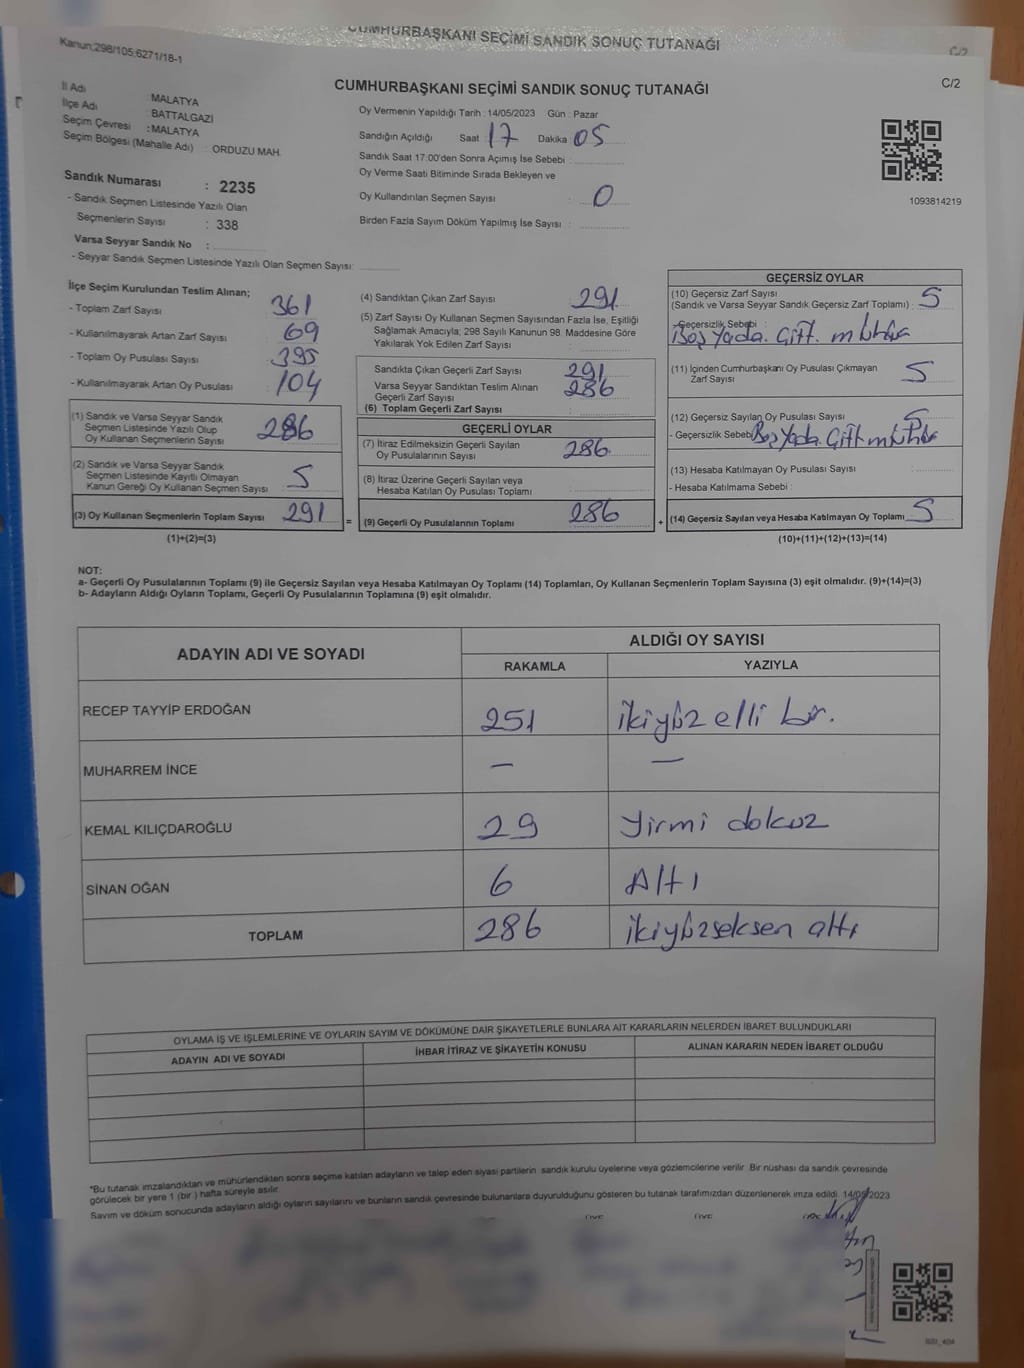 CUMHURBAŞKANI SEÇİMİ SANDIK SONUÇ TUTANAĞI
C/2
Kanun;298/105;6271/18-1
CUMHURBAŞKANI SEÇİMİ SANDIK SONUÇ TUTANAĞI
C/2
İl Adı : MALATYA
İlçe Adı : BATTALGAZİ
Seçim Çevresi : MALATYA
Seçim Bölgesi (Mahalle Adı) : ORDUZU MAH.
Sandık Numarası : 2235
- Sandık Seçmen Listesinde Yazılı Olan
Seçmenlerin Sayısı : 338
Varsa Seyyar Sandık No :
- Seyyar Sandık Seçmen Listesinde Yazılı Olan Seçmen Sayısı:
Oy Vermenin Yapıldığı Tarih : 14/05/2023 Gün : Pazar
Sandığın Açıldığı Saat : 17 Dakika : 05
Sandık Saat 17:00'den Sonra Açımış İse Sebebi :
Oy Verme Saati Bitiminde Sırada Bekleyen ve
Oy Kullandırılan Seçmen Sayısı : 0
Birden Fazla Sayım Döküm Yapılmış İse Sayısı :
1093814219
İlçe Seçim Kurulundan Teslim Alınan;
- Toplam Zarf Sayısı : 361
- Kullanılmayarak Artan Zarf Sayısı : 69
- Toplam Oy Pusulası Sayısı : 395
- Kullanılmayarak Artan Oy Pusulası : 104
(1) Sandık ve Varsa Seyyar Sandık
Seçmen Listesinde Yazılı Olup
Oy Kullanan Seçmenlerin Sayısı : 286
(2) Sandık ve Varsa Seyyar Sandık
Seçmen Listesinde Kayıtlı Olmayan
Kanun Gereği Oy Kullanan Seçmen Sayısı : 5
(3) Oy Kullanan Seçmenlerin Toplam Sayısı : 291
(1)+(2)=(3)
=
(4) Sandıktan Çıkan Zarf Sayısı : 291
(5) Zarf Sayısı Oy Kullanan Seçmen Sayısından Fazla İse, Eşitliği
Sağlamak Amacıyla; 298 Sayılı Kanunun 98. Maddesine Göre
Yakılarak Yok Edilen Zarf Sayısı :
Sandıkta Çıkan Geçerli Zarf Sayısı : 291
Varsa Seyyar Sandıktan Teslim Alınan
Geçerli Zarf Sayısı : 286
(6) Toplam Geçerli Zarf Sayısı :
GEÇERLİ OYLAR
(7) İtiraz Edilmeksizin Geçerli Sayılan
Oy Pusulalarının Sayısı : 286
(8) İtiraz Üzerine Geçerli Sayılan veya
Hesaba Katılan Oy Pusulası Toplamı :
(9) Geçerli Oy Pusulalarının Toplamı : 286
+
GEÇERSİZ OYLAR
(10) Geçersiz Zarf Sayısı
(Sandık ve Varsa Seyyar Sandık Geçersiz Zarf Toplamı) : 5
- Geçersizlik Sebebi :
Boş Yada. Çift. mühür
(11) İçinden Cumhurbaşkanı Oy Pusulası Çıkmayan
Zarf Sayısı : 5
(12) Geçersiz Sayılan Oy Pusulası Sayısı : 5
- Geçersizlik Sebebi Boş Yada. Çift mühür
(13) Hesaba Katılmayan Oy Pusulası Sayısı :
- Hesaba Katılmama Sebebi :
(14) Geçersiz Sayılan veya Hesaba Katılmayan Oy Toplamı : 5
(10)+(11)+(12)+(13)=(14)
NOT:
a- Geçerli Oy Pusulalarının Toplamı (9) ile Geçersiz Sayılan veya Hesaba Katılmayan Oy Toplamı (14) Toplamları, Oy Kullanan Seçmenlerin Toplam Sayısına (3) eşit olmalıdır. (9)+(14)=(3)
b- Adayların Aldığı Oyların Toplamı, Geçerli Oy Pusulalarının Toplamına (9) eşit olmalıdır.
ADAYIN ADI VE SOYADI
ALDIĞI OY SAYISI
RAKAMLA YAZIYLA
RECEP TAYYİP ERDOĞAN 251 ikiyüz elli bir.
MUHARREM İNCE — —
KEMAL KILIÇDAROĞLU 29 Yirmi dokuz
SİNAN OĞAN 6 Altı
TOPLAM 286 ikiyüzseksen altı
OYLAMA İŞ VE İŞLEMLERİNE VE OYLARIN SAYIM VE DÖKÜMÜNE DAİR ŞİKAYETLERLE BUNLARA AİT KARARLARIN NELERDEN İBARET BULUNDUKLARI
ADAYIN ADI VE SOYADI İHBAR İTİRAZ VE ŞİKAYETİN KONUSU ALINAN KARARIN NEDEN İBARET OLDUĞU
*Bu tutanak imzalandıktan ve mühürlendikten sonra seçime katılan adayların ve talep eden siyasi partilerin sandık kurulu üyelerine veya gözlemcilerine verilir. Bir nüshası da sandık çevresinde
görülecek bir yere 1 (bir ) hafta süreyle asılır.
Sayım ve döküm sonucunda adayların aldığı oyların sayılarını ve bunların sandık çevresinde bulunanlara duyurulduğunu gösteren bu tutanak tarafımızdan düzenlenerek imza edildi. 14/05/2023